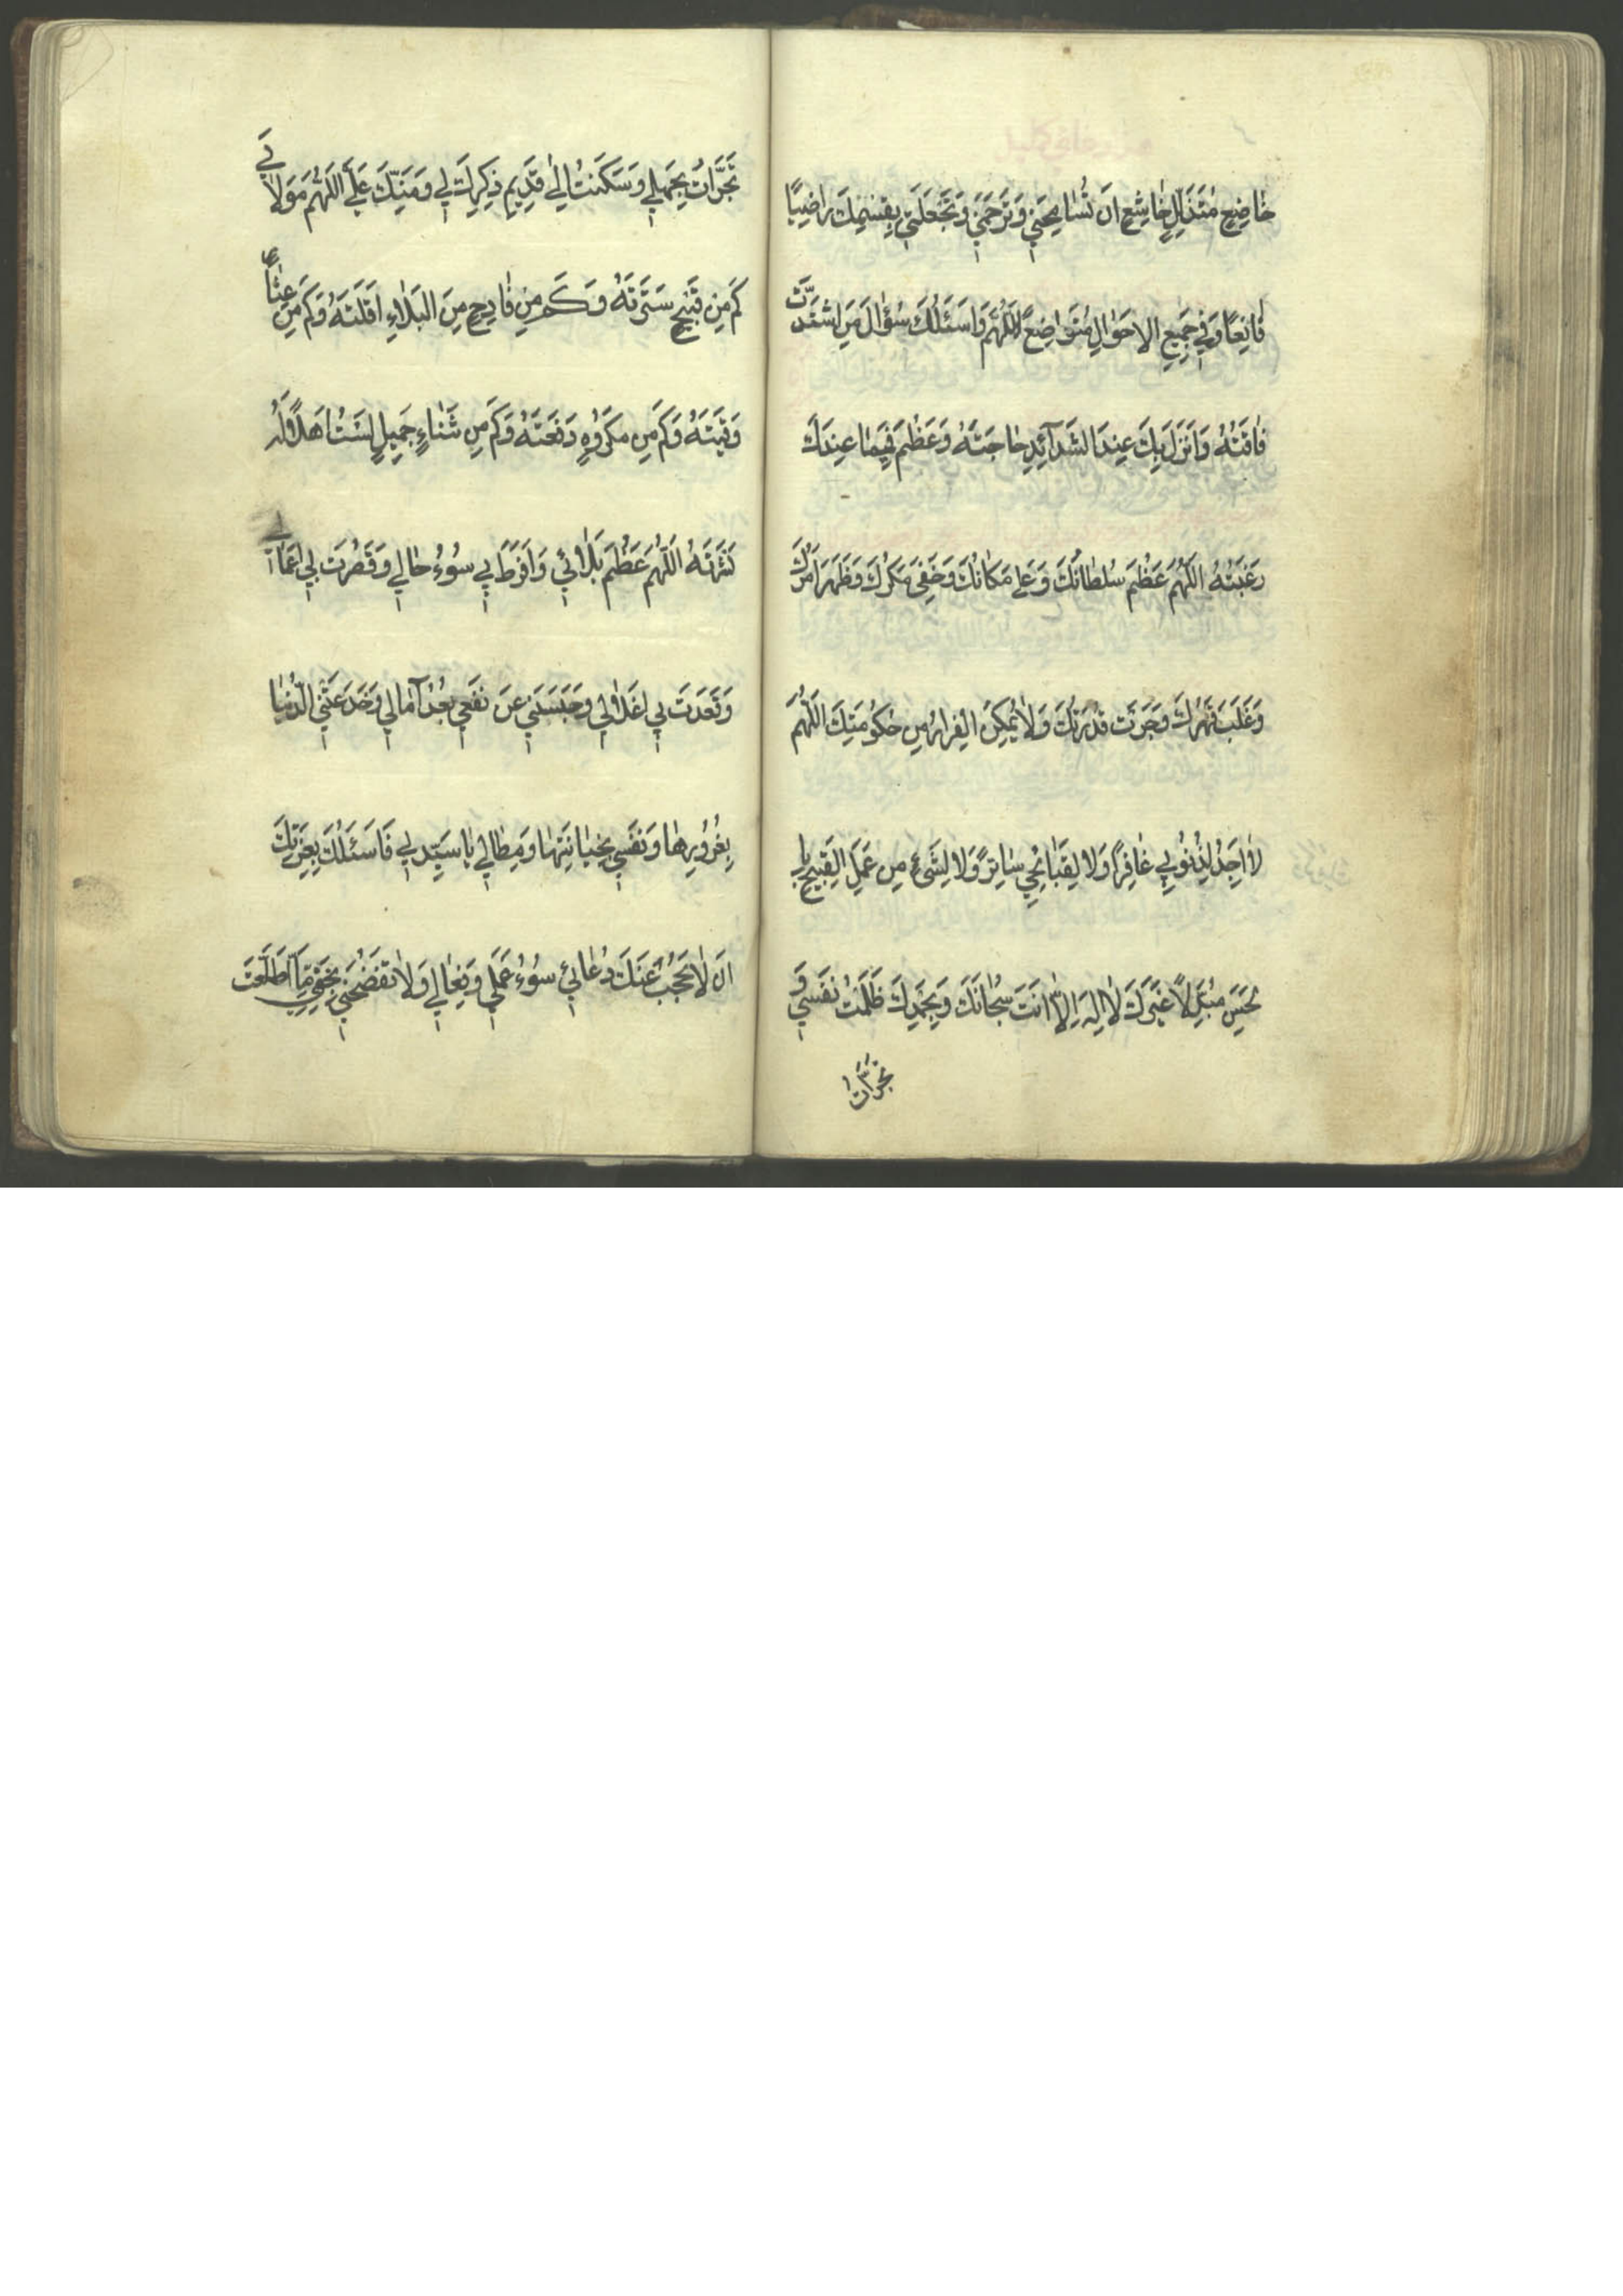 خٰاضِعٍ مُتَذَلِّلٍ خٰاشِعٍ اَنْ تُسٰامِحَنِي وَتَرْحَمَنِي وَتَجْعَلَنِي بِقِسْمِكَ رٰاضِيًا
قٰانِعًا وَفِي جَمِيعِ الاَحْوٰالِ مُتَوٰاضِعًا اَللّٰهُمَّ وَاَسْئَلُكَ سُؤٰالَ مَنِ اشْتَدَّتْ
فٰاقَتُهُ وَاَنْزَلَ بِكَ عِنْدَ الشَدٰآئِدِ حٰاجَتَهُ وَعَظُمَ فِيمٰا عِنْدَكَ
رَغْبَتُهُ اَللّٰهُمَّ عَظُمَ سُلطٰانُكَ وَعَلٰى مَكٰانُكَ وَخَفِيَ مَكْرُكَ وَظَهَرَ اَمْرُكَ
وَغَلَبَ قَهْرُكَ وَجَرَتْ قُدْرَتُكَ وَلاٰ يُمْكِنُ الْفِرٰارُ مِنْ حُكُومَتِكَ اَللّٰهُمَّ
لاٰ اَجِدُ لِذُنُوبِي غٰافِرًا وَلاٰ لِقَبٰائِحِي سٰاتِرًا وَلاٰ لِشَيْءٍ مِنْ عَمَلِيَ الْقَبِيحِ بِالْ
حَسَنِ مُبَدِّلاً غَيْرَكَ لاٰ اِلٰهَ اِلاّٰ اَنْتَ سُبْحٰانَكَ وَبِحَمْدِكَ ظَلَمْتُ نَفْسِي وَ
تجرّات
تَجَرَّأْتُ بِجَهْلِي وَسَكَنْتُ اِلٰى قَدِيمِ ذِكْرِكَ لِي وَمَنِّكَ عَلَيَّ اَللّٰهُمَّ مَوْلاٰيَ
كَمْ مِنْ قَبِيحٍ سَتَرْتَهُ وَكَمْ مِنْ فٰادِحٍ مِنَ الْبَلاٰءِ اَقَلْتَهُ وَكَمْ مِنْ عِثٰارٍ
وَقَيْتَهُ وَكَمْ مِنْ مَكْرُوهٍ دَفَعْتَهُ وَكَمْ مِنْ ثَنٰاءٍ جَمِيلٍ لَسْتُ اَهْلاً لَهُ
نَشَرْتَهُ اَللّٰهُمَّ عَظُمَ بَلاٰئِي وَاَفْرَطَ بِي سُوءُ حٰالِي وَقَصُرَتْ بِي اَعْمٰالِي
وَقَعَدَتْ بِي اَغْلاٰلِي وَحَبَسَنِي عَنْ نَفْعِي بُعْدُ آمٰالِي وَخَدَعَتْنِي الدُّنْيٰا
بِغُرُورِهٰا وَنَفْسِي بِخِيٰانَتِهٰا وَمِطٰالِي يٰا سَيِّدِي فَاَسْئَلُكَ بِعِزَّتِكَ
اَنْ لاٰ يَحْجُبَ عَنْكَ دُعٰائِي سُوءُ عَمَلِي وَفِعٰالِي وَلاٰ تَفْضَحْنِي بِخَفِيِّ مَا اطَّلَعْتَ